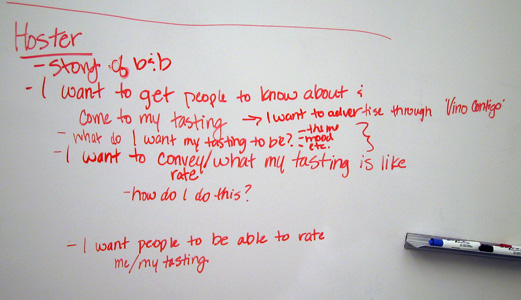 Hoster
- story of b&b
- I want to get people to know about &
come to my tasting → I want to advertise through 'Vino Contigo'
- what do I want my tasting to be? - theme
- mood
etc.
- I want to convey/what my tasting is like
rate
- how do I do this?
- I want people to be able to rate
me/my tasting.